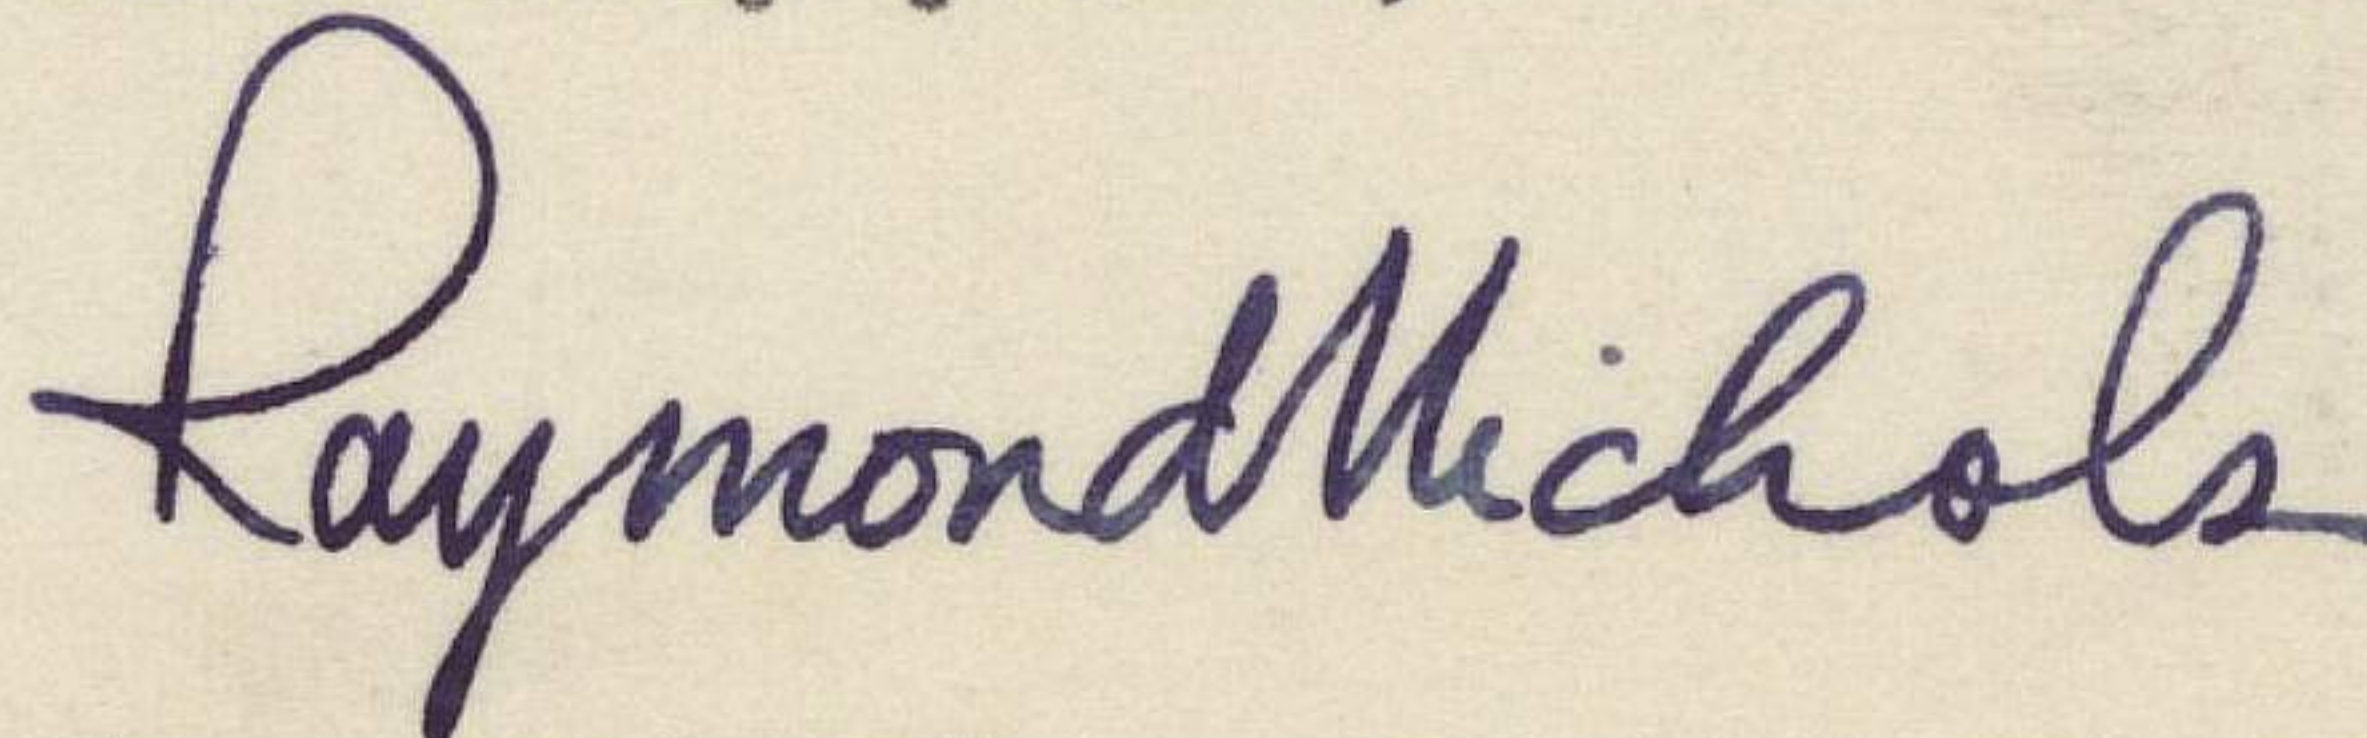 Raymond Nichols